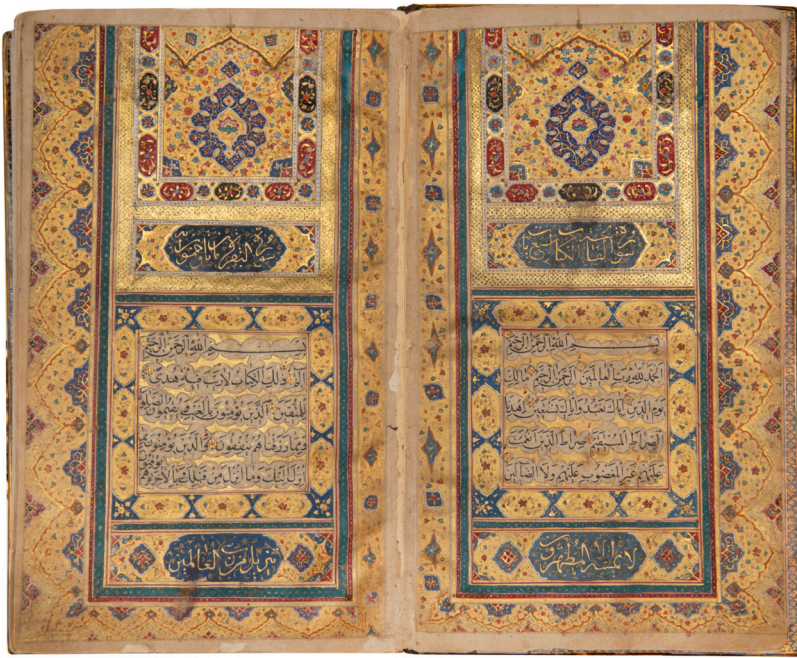 سورة فاتحة الكتاب سبع آيات
بسم الله الرحمن الرحيم
الحمد لله رب العالمين الرحمن الرحيم مالك
يوم الدين اياك نعبد واياك نستعين اهدنا
الصراط المستقيم صراط الذين انعمت
عليهم غير المغضوب عليهم ولا الضالين
لا يمسه الا المطهرون
سورة البقرة
بسم الله الرحمن الرحيم
الم ذلك الكتاب لا ريب فيه هدى
للمتقين الذين يؤمنون بالغيب ويقيمون الصلوة
ومما رزقناهم ينفقون والذين يؤمنون بما
انزل اليك وما انزل من قبلك وبالاخرة هم
يوقنون
تنزيل من رب العالمين